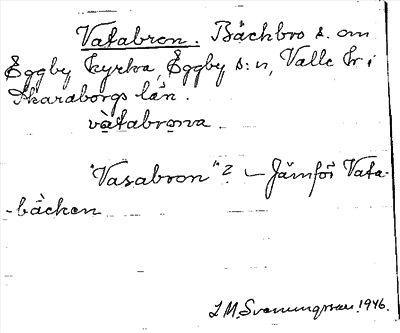 Vatabron. Bäckbro s. om
Eggby kyrka, Eggby s:n, Valle hr i
Skaraborgs län.
vàtabrona.
"Vasabron"? – Jämför Vata-
-bäcken
L M. Svenungsson. 1946.